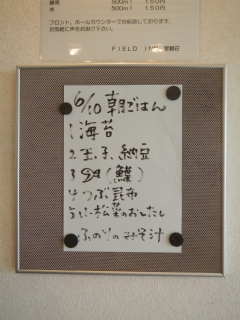 緑茶 500ml 150円
水 500ml 150円
フロント、ホールカウンターで対応致しております。
お気軽に声をお掛け下さい。
FIELD IN
6/10 朝ごはん
1 海苔
2 玉子、納豆
3 (鰈)
4 つぶ 昆布
5 小松菜のおひたし
ふのりのみそ汁